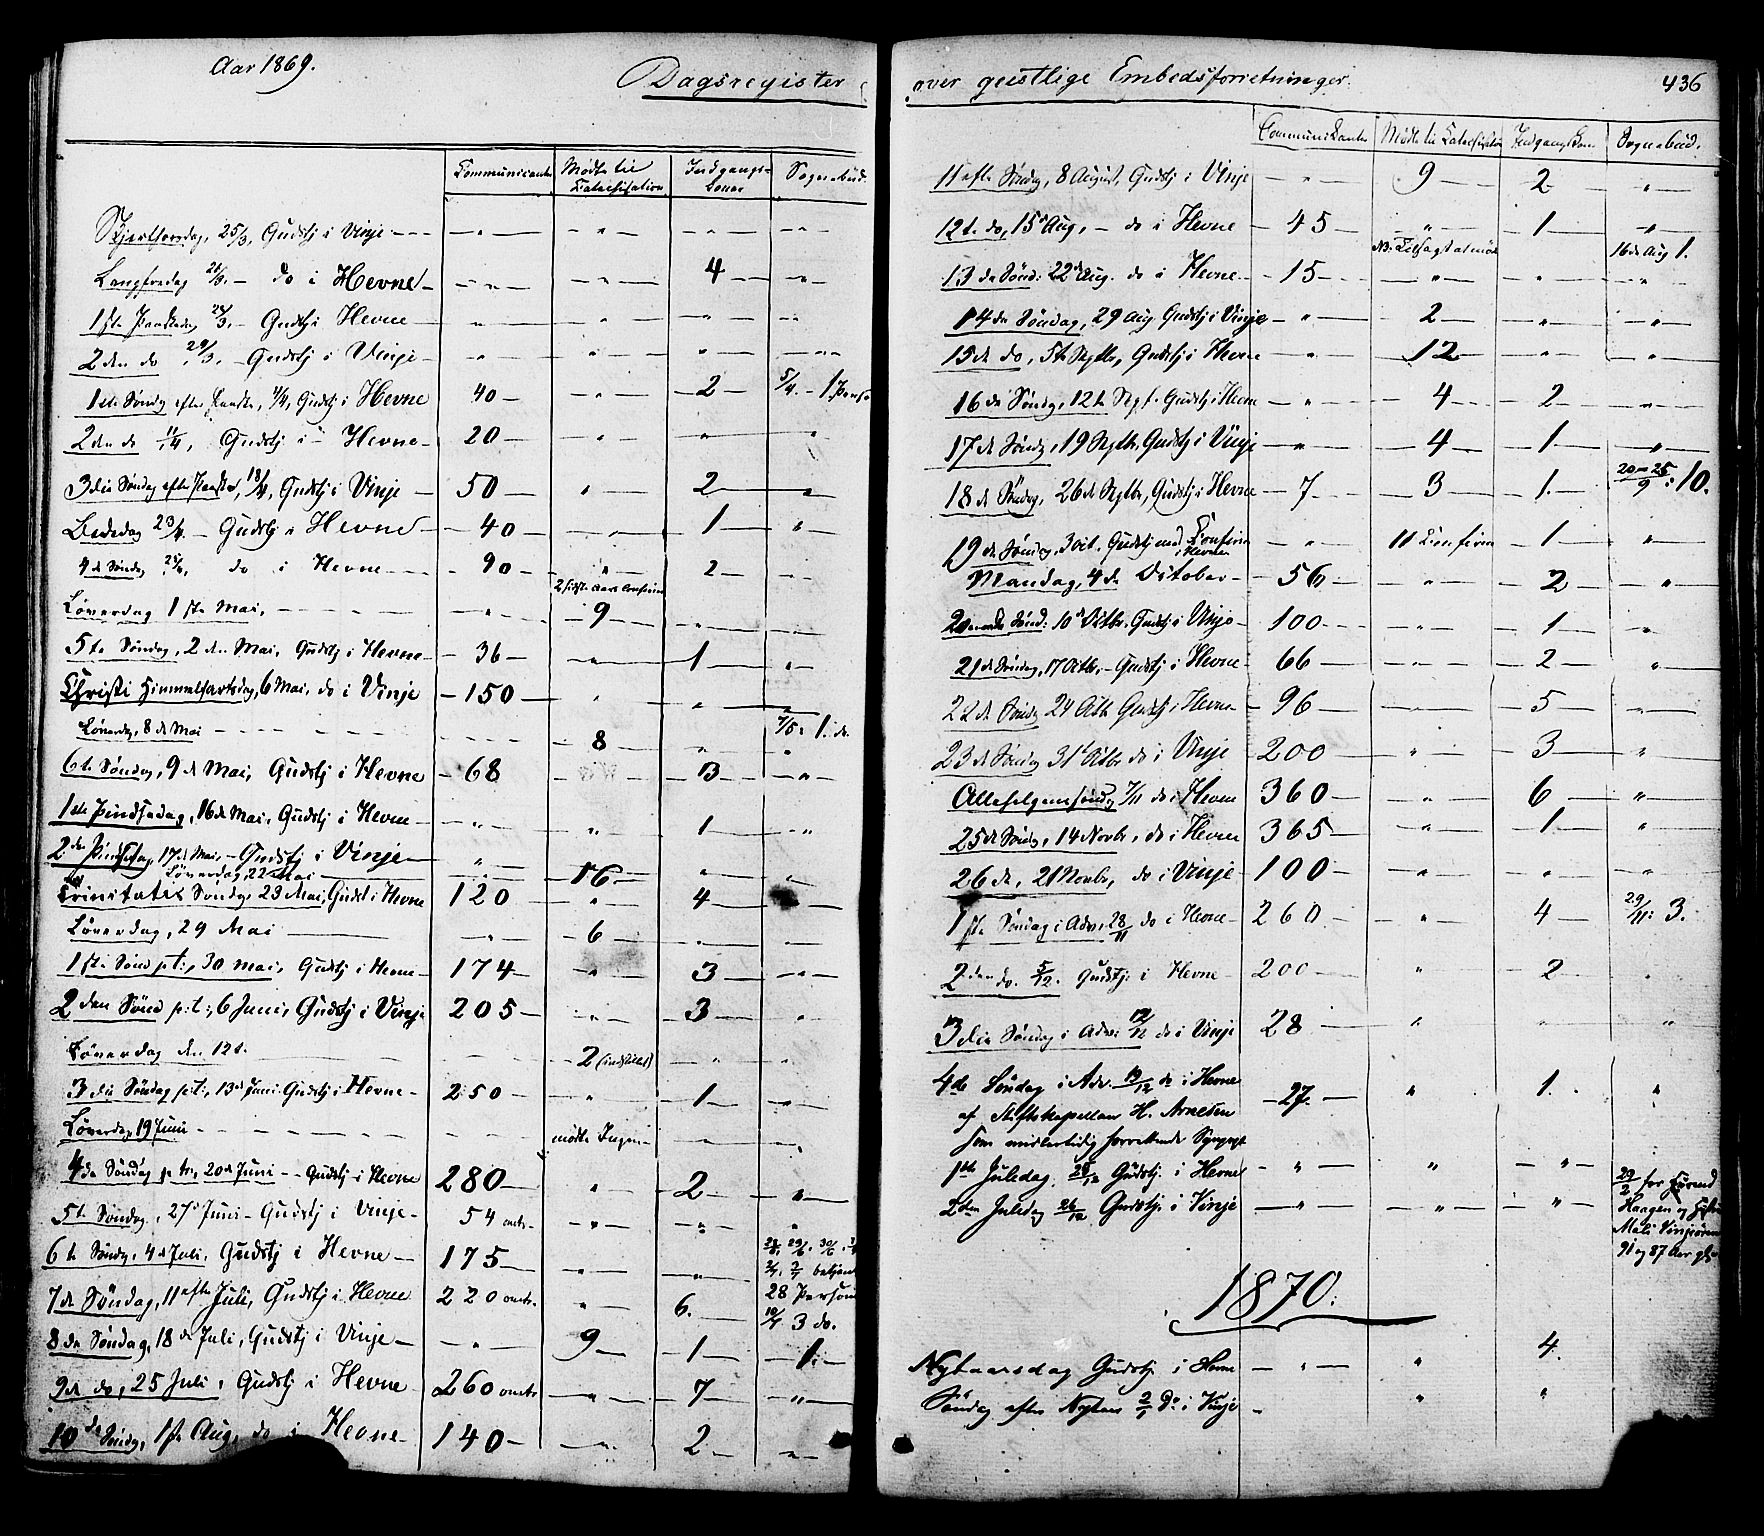 Aar 1869.
Dagsregister
Communicanter Mødte til Catechisation Indgangs-koner Sognebud.
Skjærthorsdag, 25/3, Gudstj i Vinje - - - - " - - " - - " - - " -
Langfredag 26/3. - do i Hevne - - " - - " - 4 - " -
1ste Paaskedag 28/3. - Gudstj i Hevne - " - " - " - " -
2den do 29/3. - Gudstj i Vinje - " - " - " - " -
1ste Søndg efter Paaske, 4/4, Gudstj i Hevne 40 - " - 2 - 5/4. - 1. Person
2den do 11/4, Gudstj i Hevne - 20 - " - " - "
3die Søndag efter Paaske, 18/4, Gudstj i Vinje - 50 - " - 2 - "
Bededag 23/4. - Gudstj i Hevne - 40 - " - 1 - "
4de Søndg 25/4, do i Hevne - 90 - " - 2 -
Løverdag 1ste Mai. - - - - - " - 2 sidste Aars Confirm 9 - " - "
5te Søndag, 2den Mai, Gudstj i Hevne - 36 - " - 1 - "
Christi Himmelfartsdag, 6 Mai, do i Vinje - 150 - " - " - "
Løverdg, 8de Mai - - - - - 8 " 7/5. 1. do.
6te Søndag, 9de Mai, Gudstj i Hevne - 68 - 3 - "
1ste Pindsedag, 16de Mai, Gudstj i Hevne - " - " - 1 - "
2den Pindsedag, 17de Mai, - Gudstj i Vinje - "
Løverdag, 22 Mai - 16 - " - "
Trinitatis Søndg, 23 Mai, Gudst i Hevne 120 - " - 4 -
Løverdag, 29 Mai - " - 6 - " - "
1ste Sønd p.t., 30 Mai, Gudstj i Hevne - 174 - " - 3 - "
2den Sønd p.t., 6 Juni, Gudstj i Vinje 205 - " - 3 - "
Løverdag den 12t. - - - - 2 (indstillet) - " - "
3die Søndag p.t., 13de Juni. Gudstj i Hevne - 250 - " - 1 - "
Løverdag, 19 Juni - - - - - mødte Ingen - " - "
4de Søndag p. tr., 20de Juni - Gudstj i Hevne 280 - " - 2 - "
5te Søndag, 27de Juni - Gudstj i Vinje - 54 omtr. - " - " - "
6te Søndg, 4de Juli. Gudstj i Hevne - 175 - " - " 29/6. 30/6.
betjent
7de Søndag, 11efter Juli, Gudstj i Hevne 220 omtr. - " - 6. - 28 Person
10/7 3 do.
8de Søndag, 18de Juli, Gudstj i Vinje - " - 9 - 1 - 1. -
9de do, 25 Juli, Gudstj i Hevne - 260 omtr - " - 7 - "
10de Søndg, 1ste Aug, do i Hevne - 140 - " - 2 - "
over geistlige Embedsforretninger. 436
Communikanter Mødte til Catechisation Indgangskoner Sognebud.
11efter Søndg, 8 August, Gudstj i Vinje - " - 9 - 2 - "
12t. do, 15de Aug, - do i Hevne - 45 - " - 1 - "
16de Aug 1.
13de Sønd. 22de Aug. do i Hevne - 15 - " - " - "
14de Søndag, 29 Aug Gudstj i Vinje - " - 2 - " - "
15de do, 5te Septbr, Gudstj i Hevne - " - 12 - " - "
16de Søndg, 12te Sept. Gudstj i Hevne - " - 4 - 2 - "
17de Søndg, 19 Septbr, Gudstj i Vinje - " - 4 - 1 - "
18de Søndg, 26de Septbr, Gudstj i Hevne - 7 - 3 - 1. - 20-25/9: 10.
19de Søndag. 3 Oct. Gudstj med Confirm i Hevne - " - 11 Confirm - 1 - "
Mandag, 4de October - - 56 - " - 2 - "
20nde Sønd: 10de Octbr. Gudstj i Vinje - 100 - " - 1 - "
21de Søndag, 17 Octbr. - Gudstj i Hevne - 66 - " - 2 - "
22de Søndg 24 Octb Gudstj i Hevne - 96 - " - 5 - "
23de Søndg 31te Octbr do i Vinje - 200 - " - 3 - "
Allehelgensøndg 7/11 do i Hevne 360 - " - 6 - "
25de Søndg, 14 Novbr, do i Hevne 365 - " - 1 - "
26de, 21 Novbr, do i Vinje - 100 - " - " - "
1ste Søndag i Adv. 28/11 do i Hevne - 260 - " - 4 - 29/11: 3.
2den do. 5/12. Gudstj. i Hevne - 200 - " - 2 - "
3die Søndag i Adv: 12/12 do i Vinje 28 - " " "
4de Søndag i Adv. 19/12 do i Hevne - 27. - " 1. "
af Stiftskapellan H. Arnesen
som midlertidig forrettende Sgnprst
1ste Juledag. 25/12 Gudstj. i Hevne - " - " - " -
2den Juledag 26/12 Gudstj. i Vinje - " - " - "
Haagen og
Mali
91 og 87 Aar gl.
1870.
Nytaarsdag Gudstj. i Hevne - " - " 4.
Søndag efter Nytaar 2/1 Do. i Vinje - " "